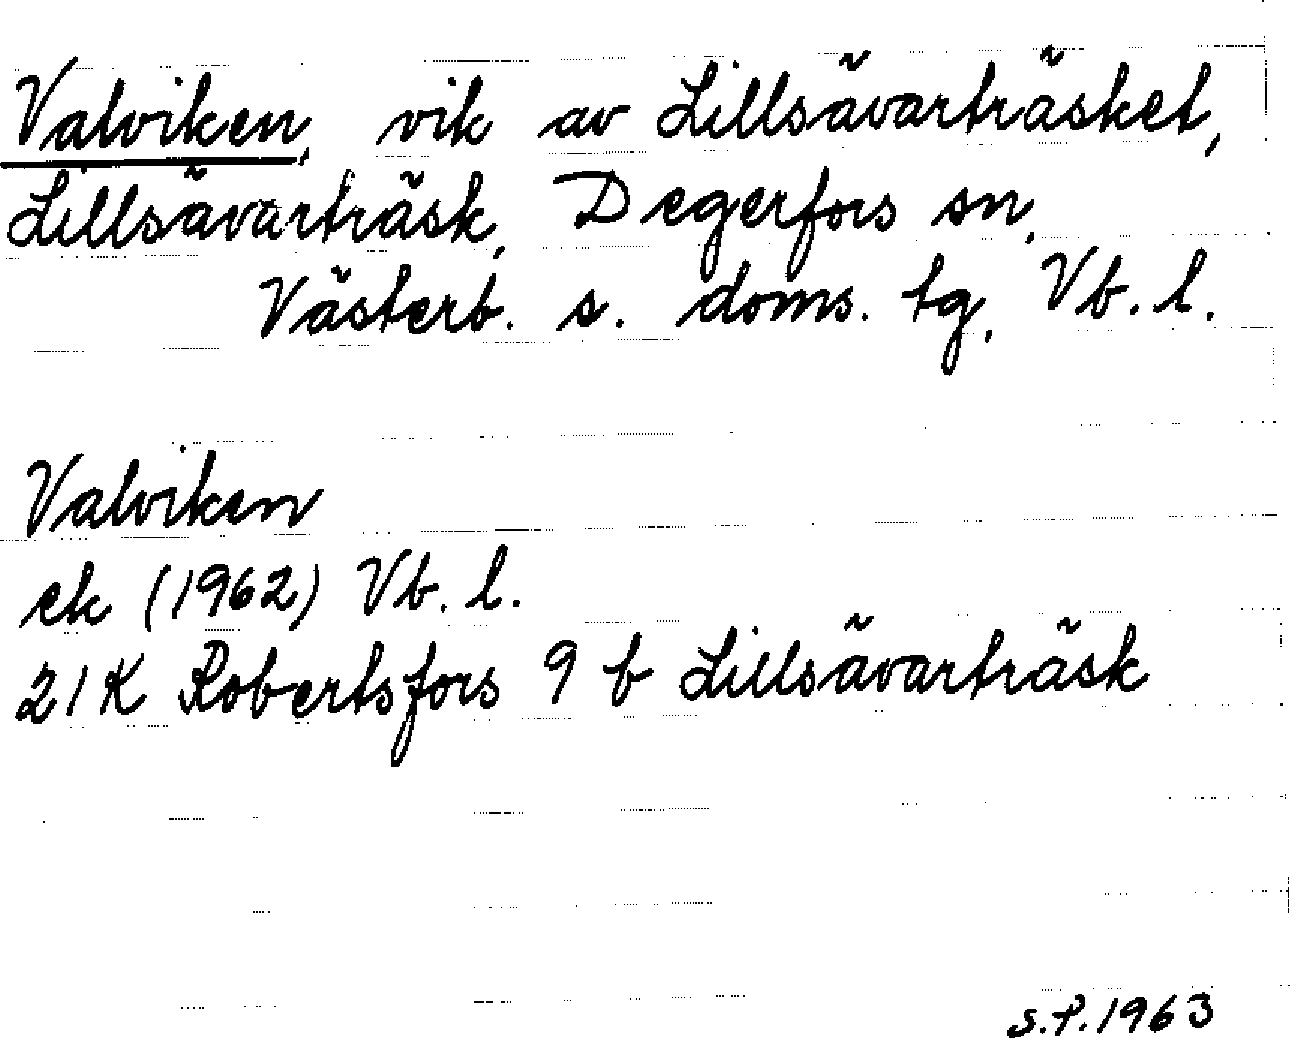 Valviken, vik av Lillsävarträsket,
Lillsävarträsk, Degerfors sn,
Västerb. s. doms. tg, Vb. l.
Valviken
ek (1962) Vb. l.
21K Robertsfors 9 b Lillsävarträsk
S.P. 1963